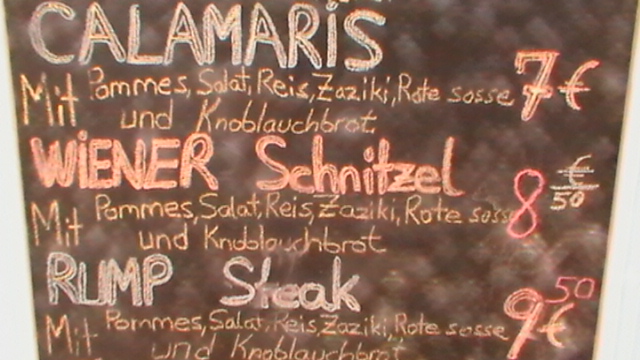 CALAMARIS
Mit Pommes, Salat, Reis, Zaziki, Rote sosse 7€
und Knoblauchbrot
WiENER Schnitzel
Mit Pommes, Salat, Reis, Zaziki, Rote sosse 8 € 50
und Knoblauchbrot
RUMP Steak
Mit Pommes, Salat, Reis, Zaziki, Rote sosse 9 50 €
und Knoblauchbrot